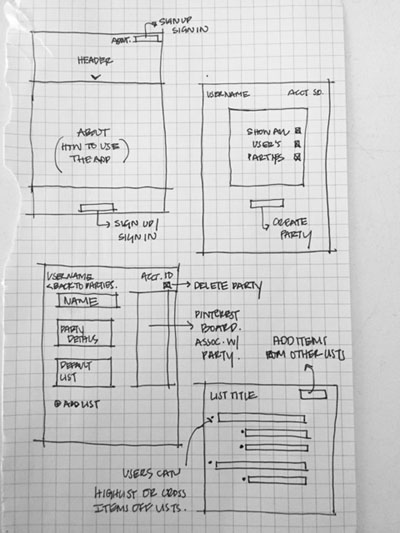 SIGN UP
SIGN IN
ACCT.
HEADER
ABOUT
(HOW TO USE
THE APP)
SIGN UP/
SIGN IN
USERNAME
ACCT SD.
SHOW ALL
USER'S
PARTYS
CREATE
PARTY
USERNAME
ACCT. ID
<BACK TO PARTIES.
DELETE PARTY
NAME
PARTY
DETAILS
DEFAULT
LIST
ADD LIST
PINTEREST
BOARD.
ASSOC. W/
PARTY.
ADD ITEMS
FROM OTHER LISTS
LIST TITLE
USERS CAN
HIGHLIST OR CROSS
ITEMS OFF LISTS.